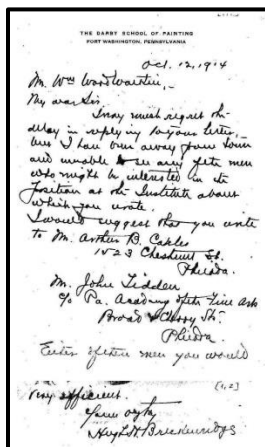 THE DARBY SCHOOL OF PAINTING
FORT WASHINGTON, PENNSYLVANIA
Oct. 12, 1914
Mr. Wm Woodward,—
My dear Sir
I very much regret the
delay in replying to your letter,
but I have been away from town
and unable to see any of the men
who might be interested in the
position at the Institute about
which you wrote.
I would suggest that you write
to Mr. Arthur B. Carles
1523 Chestnut St.
Phila.
Mr. John Lidden
c/o Pa. Academy of the Fine Arts
Broad & Cherry Sts.
Phila.
Either of these men you would
[1,2]
very efficient.
Yours truly
Hugh H. Breckenridge